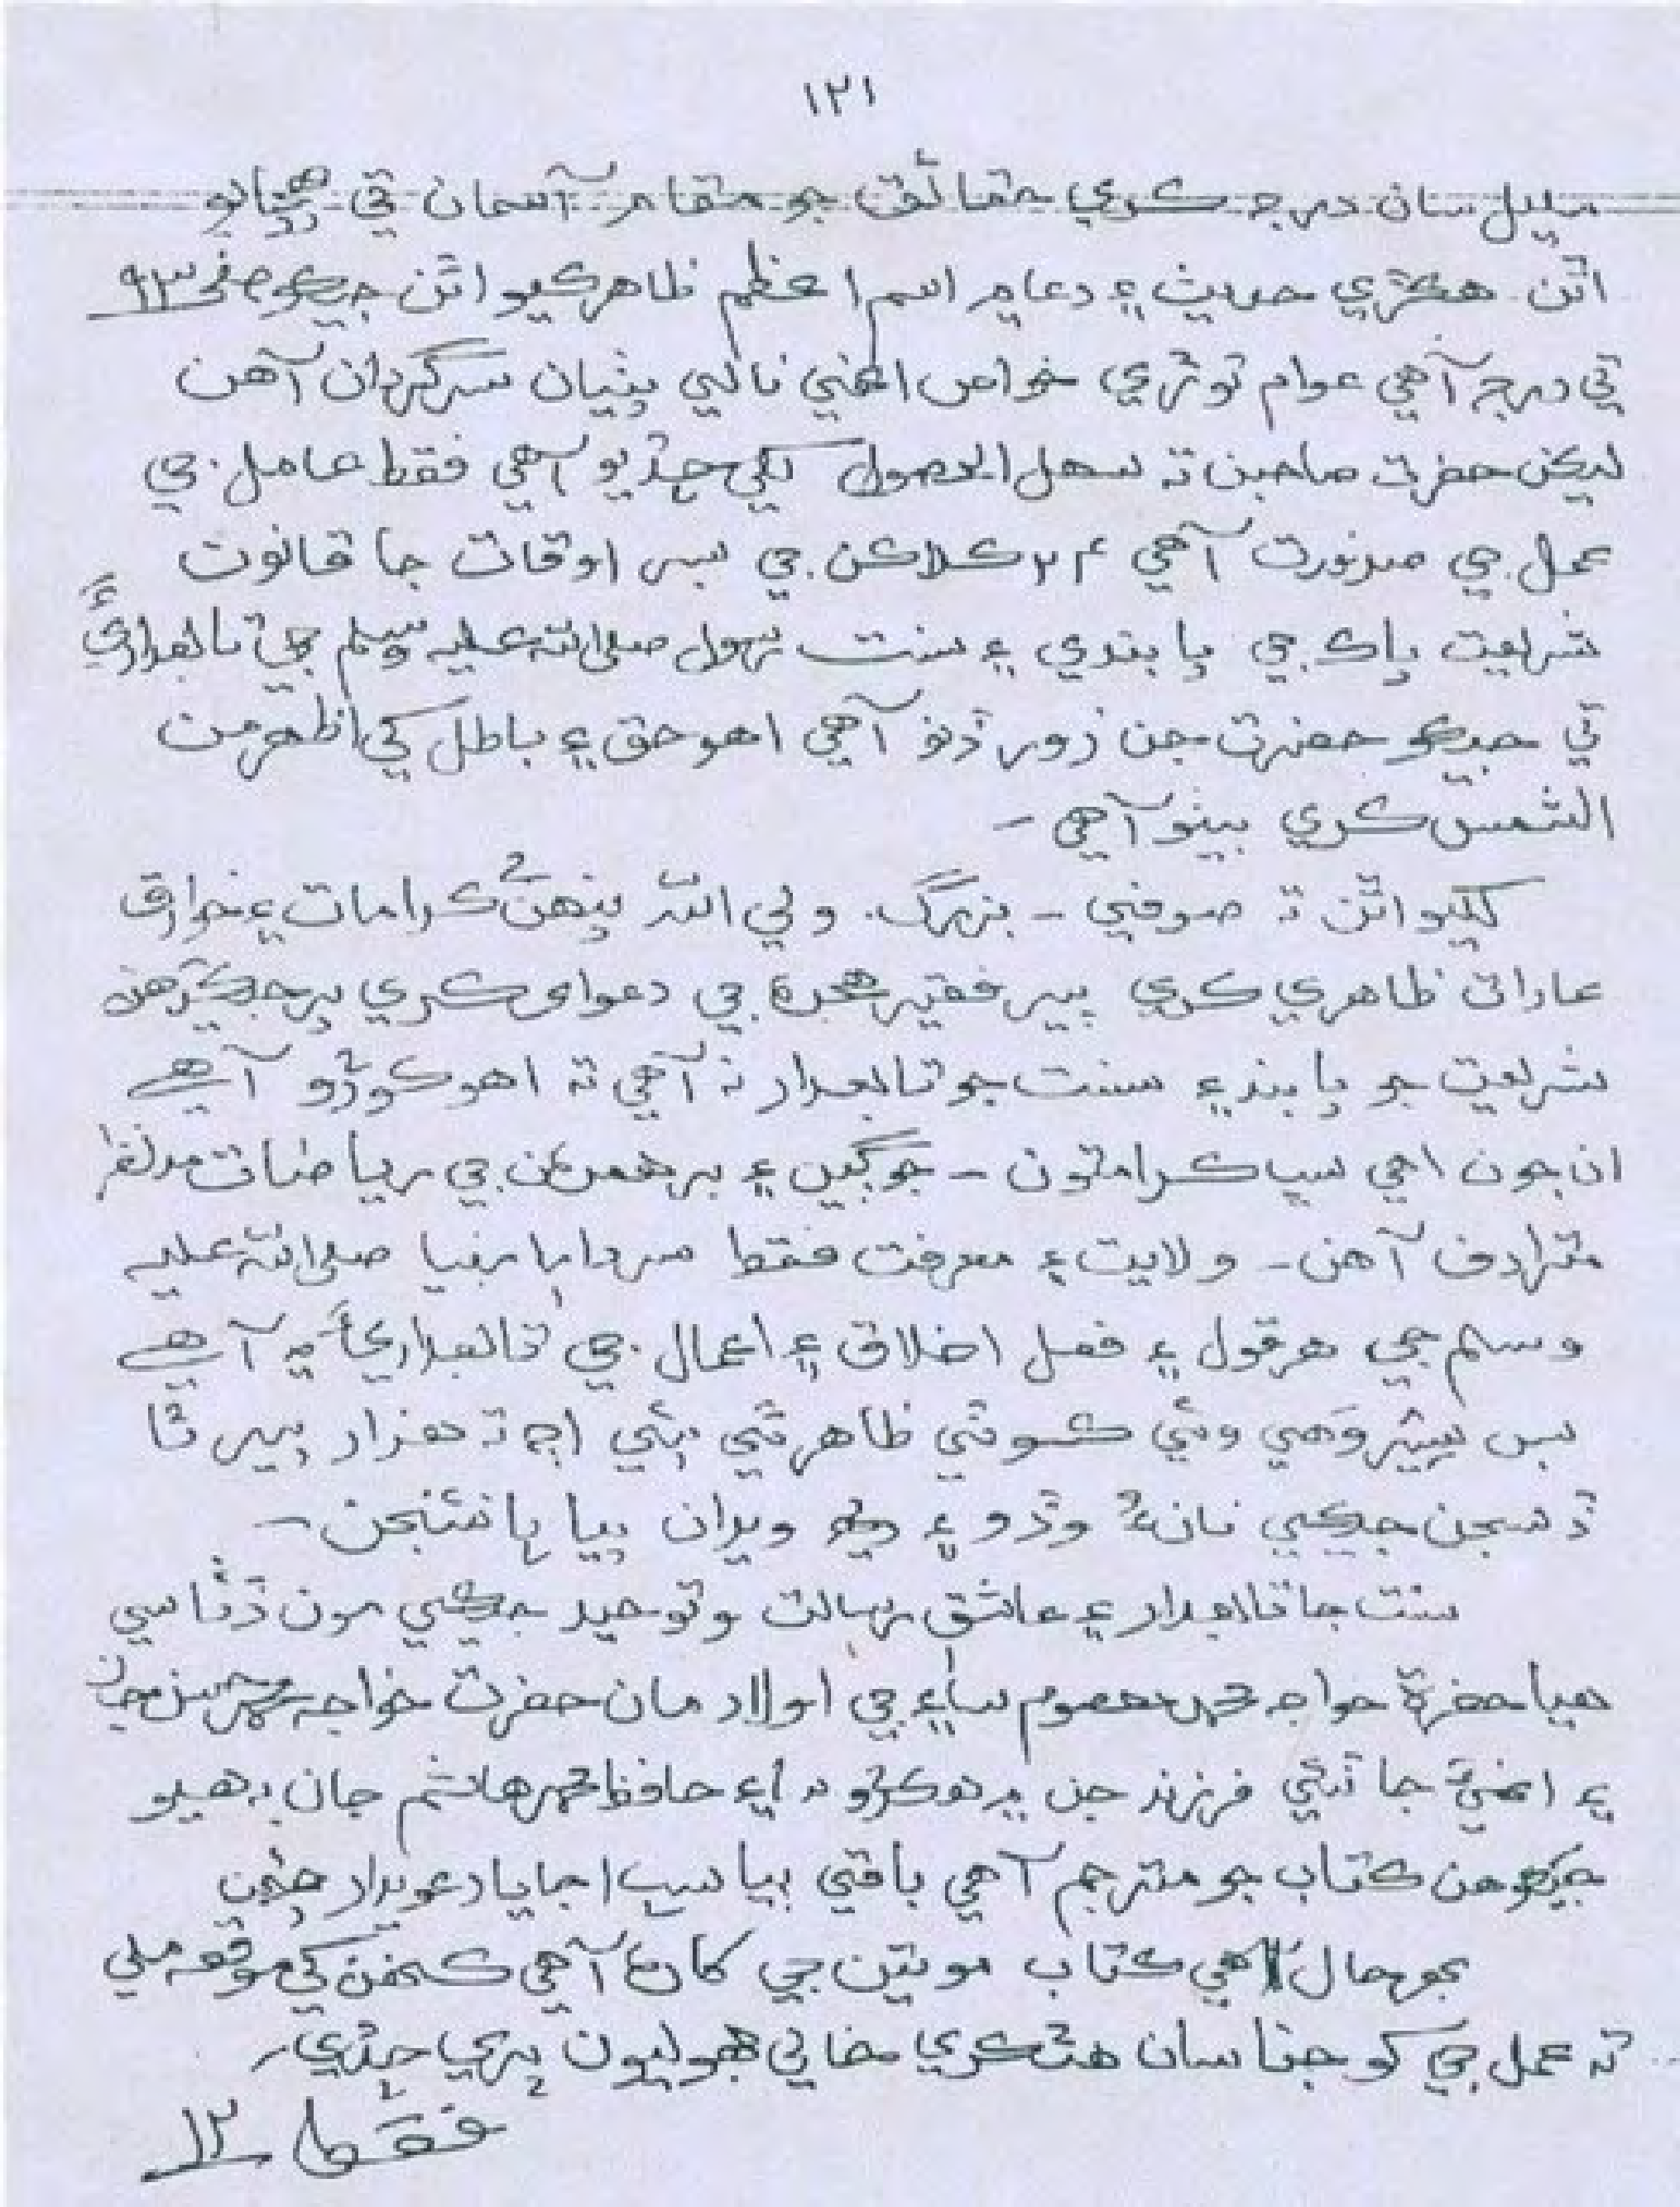 ١٢١
سان درج ڪري حقائق جو مقام آسمان تي
اٿن. هڪڙي حديث ۽ دعا ۾ اسم اعظم ظاهر ڪيو اٿن جيڪو صفحہ ٩٣
تي درج آهي عوام توڙي خواص اهڙي نالي پٺيان سرگردان آهن
ليڪن حضرت صاحبن تہ سهل الحصول لکي ڇڏيو آهي فقط عامل جي
عمل جي ضرورت آهي ٢٤ ڪلاڪن جي بسر اوقات جا قانون
شريعت پاڪ جي پابندي ۽ سنت رسول صلي اللہ عليہ وسلم جي تابعداريءَ
تي جيڪو حضرت جن زور ڏنو آهي اهو حق ۽ باطل کي اظهر من
الشمس ڪري بيٺو آهي –
لکيو اٿن تہ صوفي – بزرگ. ولي اللہ پنهنجون ڪرامات ۽ خوارق
عادات ظاهر ڪري پير فقير جي دعوا ڪري پر جيڪڏهن
شريعت جو پابند ۽ سنت جو تابعدار نہ آهي تہ اهو ڪوڙو آهي
ان جون اهي سڀ ڪرامتون – جوڳين ۽ برهمڻن جي رياضات
مترادف آهن – ولايت ۽ معرفت فقط صلي اللہ عليہ
وسلم جي هر قول ۽ فعل اخلاق ۽ اعمال جي تابعداريءَ ۾ آهي
بس ڪسوٽي ظاهر ٿي پئي اڄ تہ هزار پير ٿا
ڏسجن جيڪي وڏو ۽ ويران پيا
سنت جا تابعدار ۽ عاشق رسالت و توحيد جيڪي مون ڏٺا سي
هيا حضرة خواجہ محمد معصوم جي اولاد مان حضرت خواجہ محمد حسن جان
۽ جا ٽئي فرزند جن ۾ هڪڙو ۽ حافظ محمد هاشم جان بہ هيو
جيڪو هن ڪتاب جو مترجم آهي باقي ٻيا سڀ اجايا دعويدار
بهرحال هي ڪتاب موتين جي کاڻ آهي ڪنهن کي موقعہ ملي
تہ عمل جي سان هٿ ڪري خالي جھوليون ڀري ڇڏي
فقط ١٢